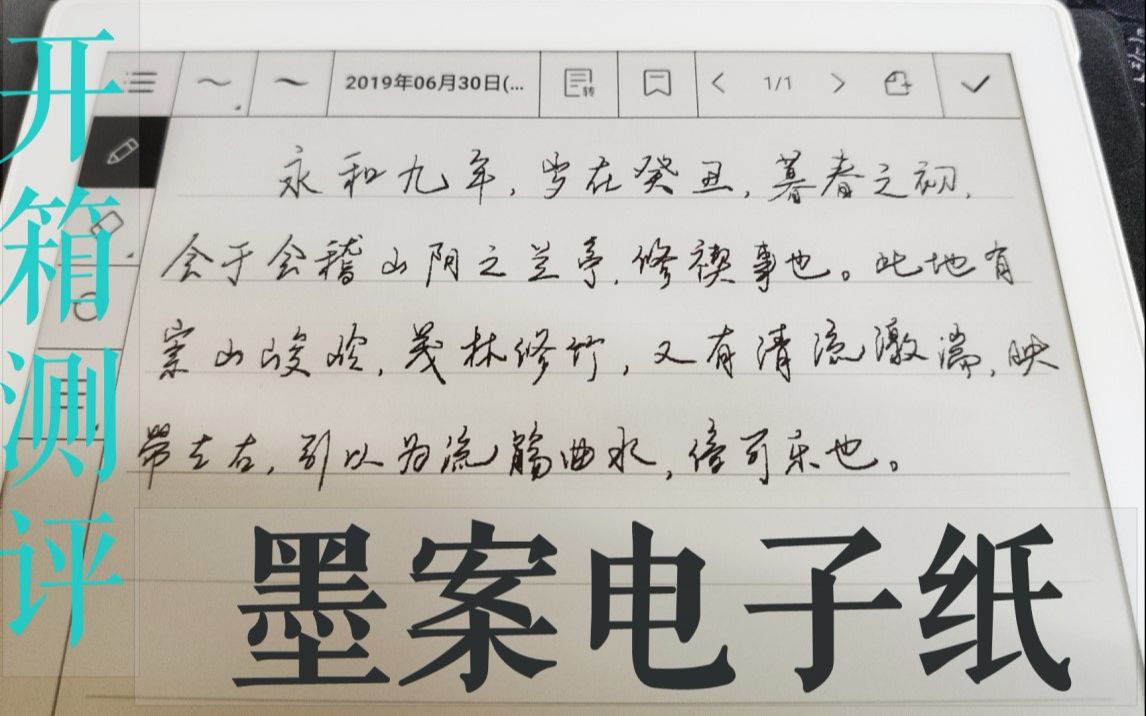 开箱测评
2019年06月30日(...
转
1/1
永和九年,岁在癸丑,暮春之初,
会于会稽山阴之兰亭,修禊事也。此地有
崇山峻岭,茂林修竹,又有清流激湍,映
带左右,引以为流觞曲水,信可乐也。
墨案电子纸